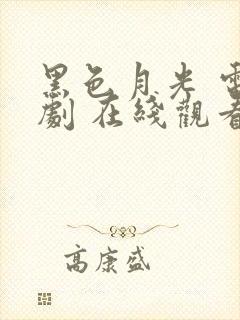 黑色月光 電
劇 在綫觀看
高康盛